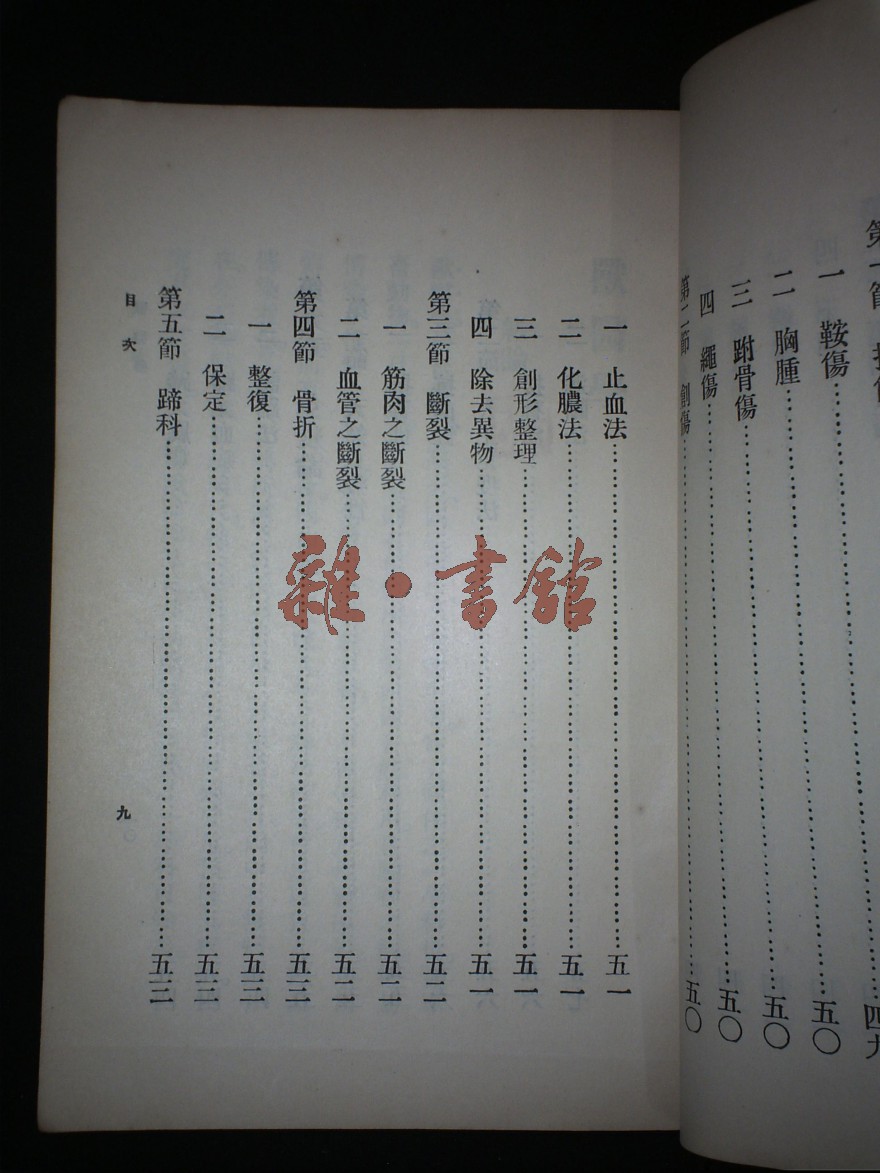 一 鞍傷……五〇
二 胸腫……五〇
三 跗骨傷……五〇
四 繩傷……五〇
第二節 創傷……五〇
一 止血法……五一
二 化膿法……五一
三 創形整理……五一
四 除去異物……五一
第三節 斷裂……五二
一 筋肉之斷裂……五二
二 血管之斷裂……五二
第四節 骨折……五三
一 整復……五三
二 保定……五三
第五節 蹄科……五三
目次
九
雜·書館